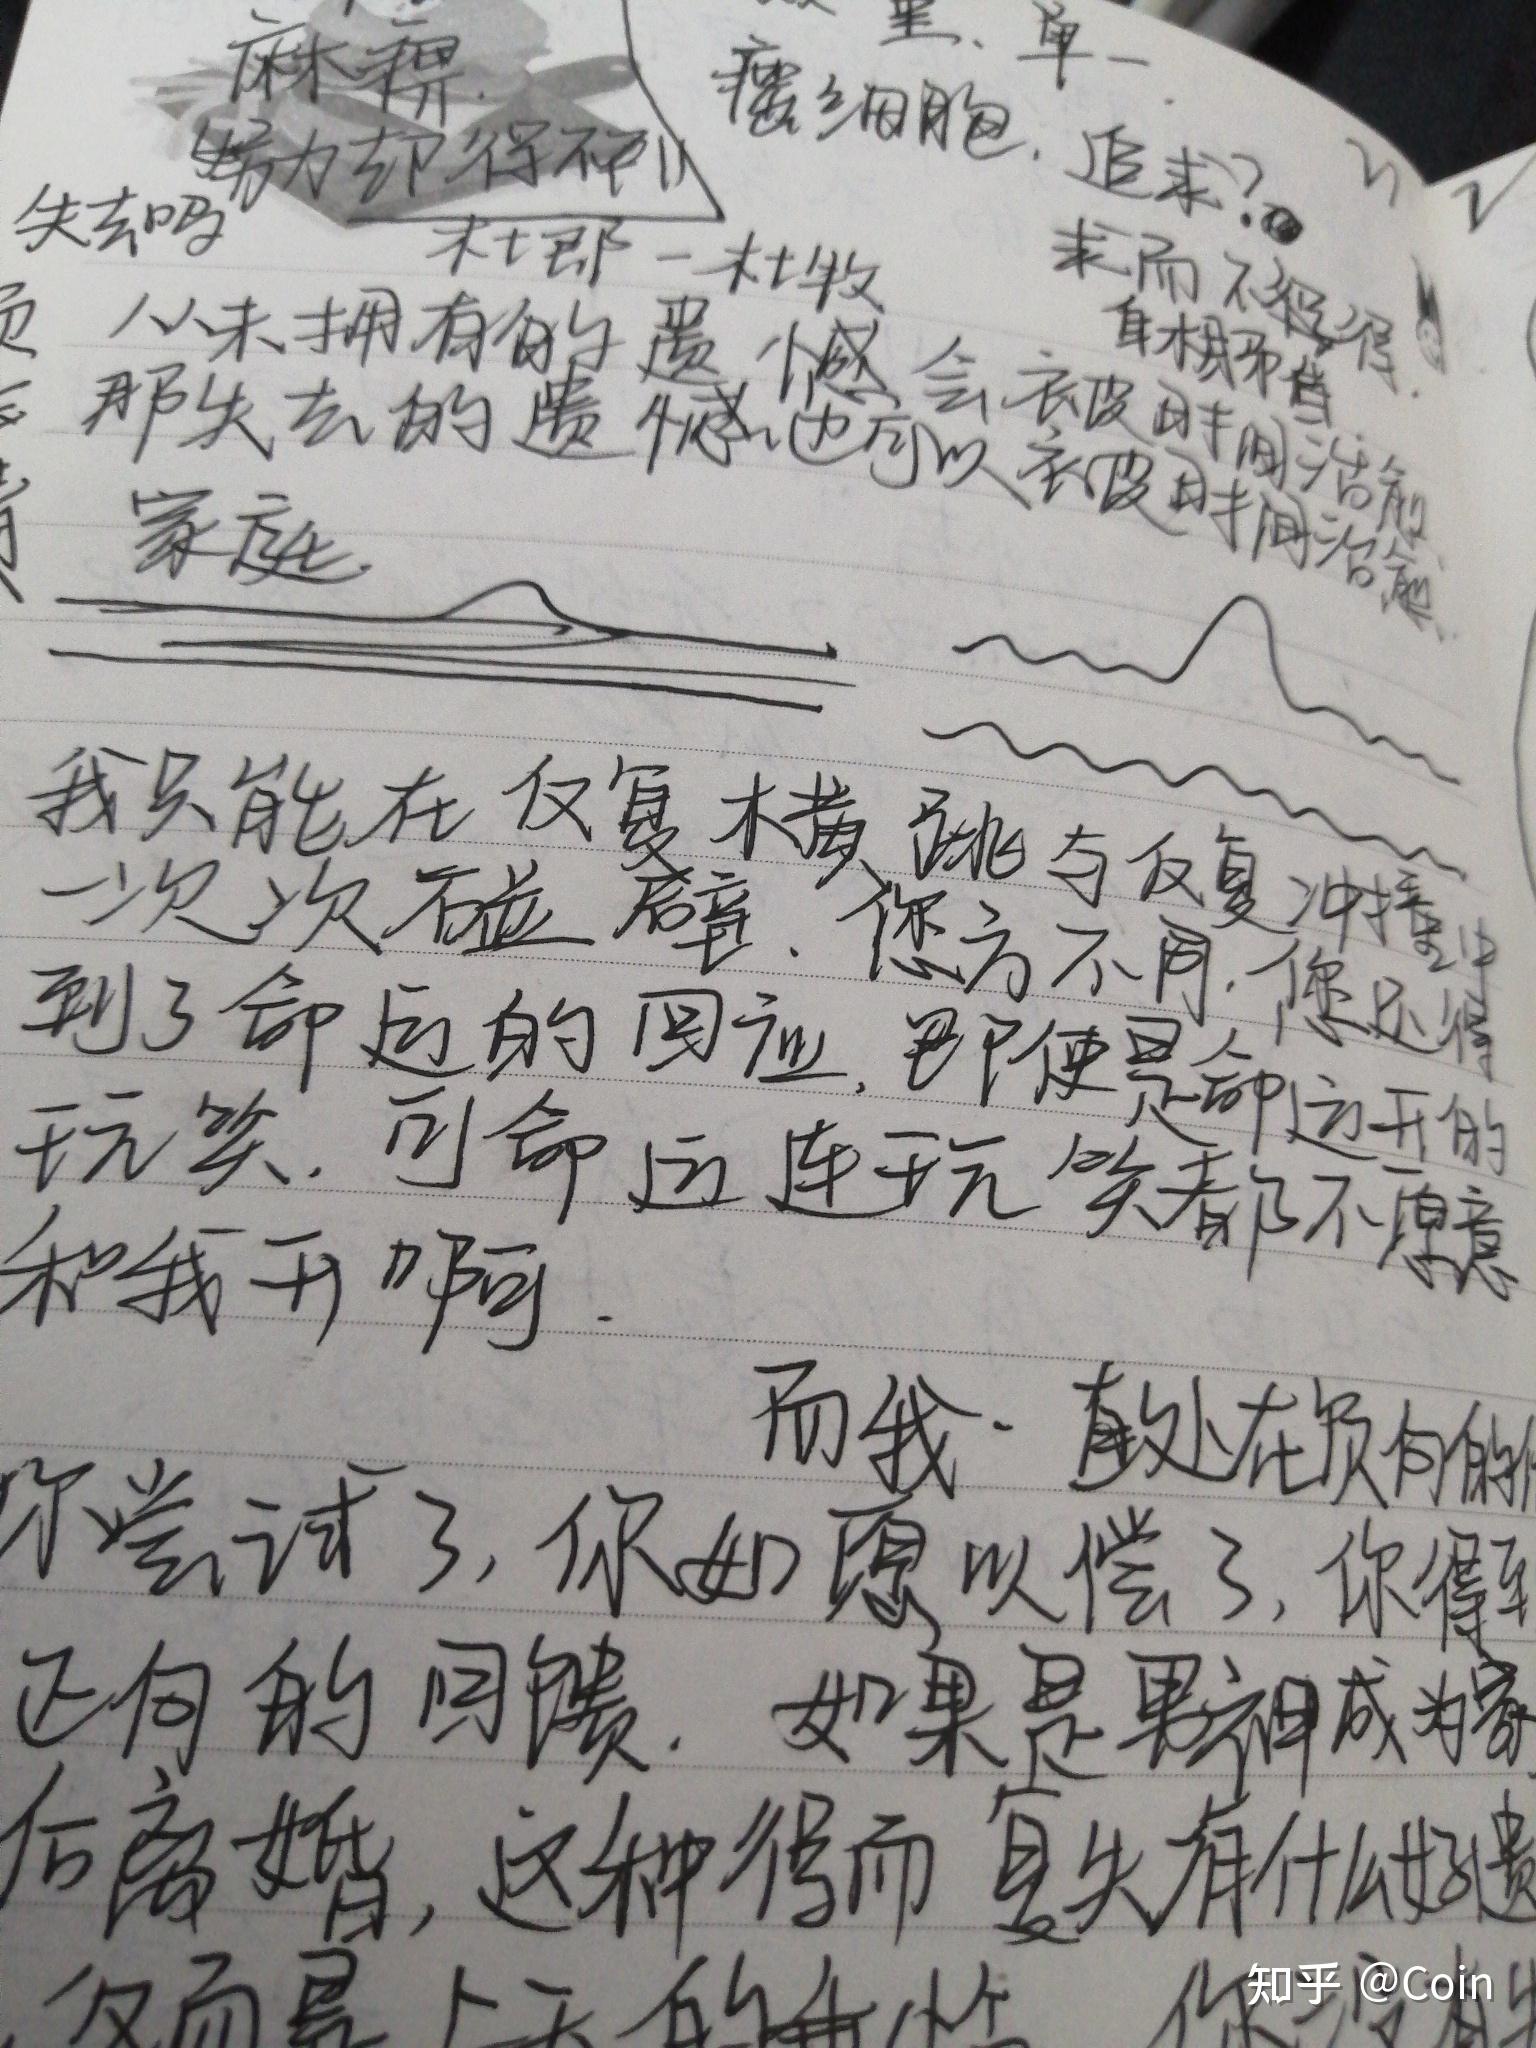 麻痹.
努力却得不到
失去吗
里、单一.
瘾细胞. 追求?
求而不得
杜郎-杜牧
从未拥有的遗憾会被时间治愈
那失去的遗憾也可以被时间治愈.
家庭.
我只能在反复横跳与反复冲撞中
一次次碰壁. 您方不同. 您还得
到了命运的回应, 即使是命运开的
玩笑. 可命运连玩笑都不愿意
和我开啊.
而我一直处在负向的
你尝试了, 你如愿以偿了, 你得到
正向的回馈. 如果是男神成为家
后离婚, 这种得而复失有什么好遗
知乎 @Coin